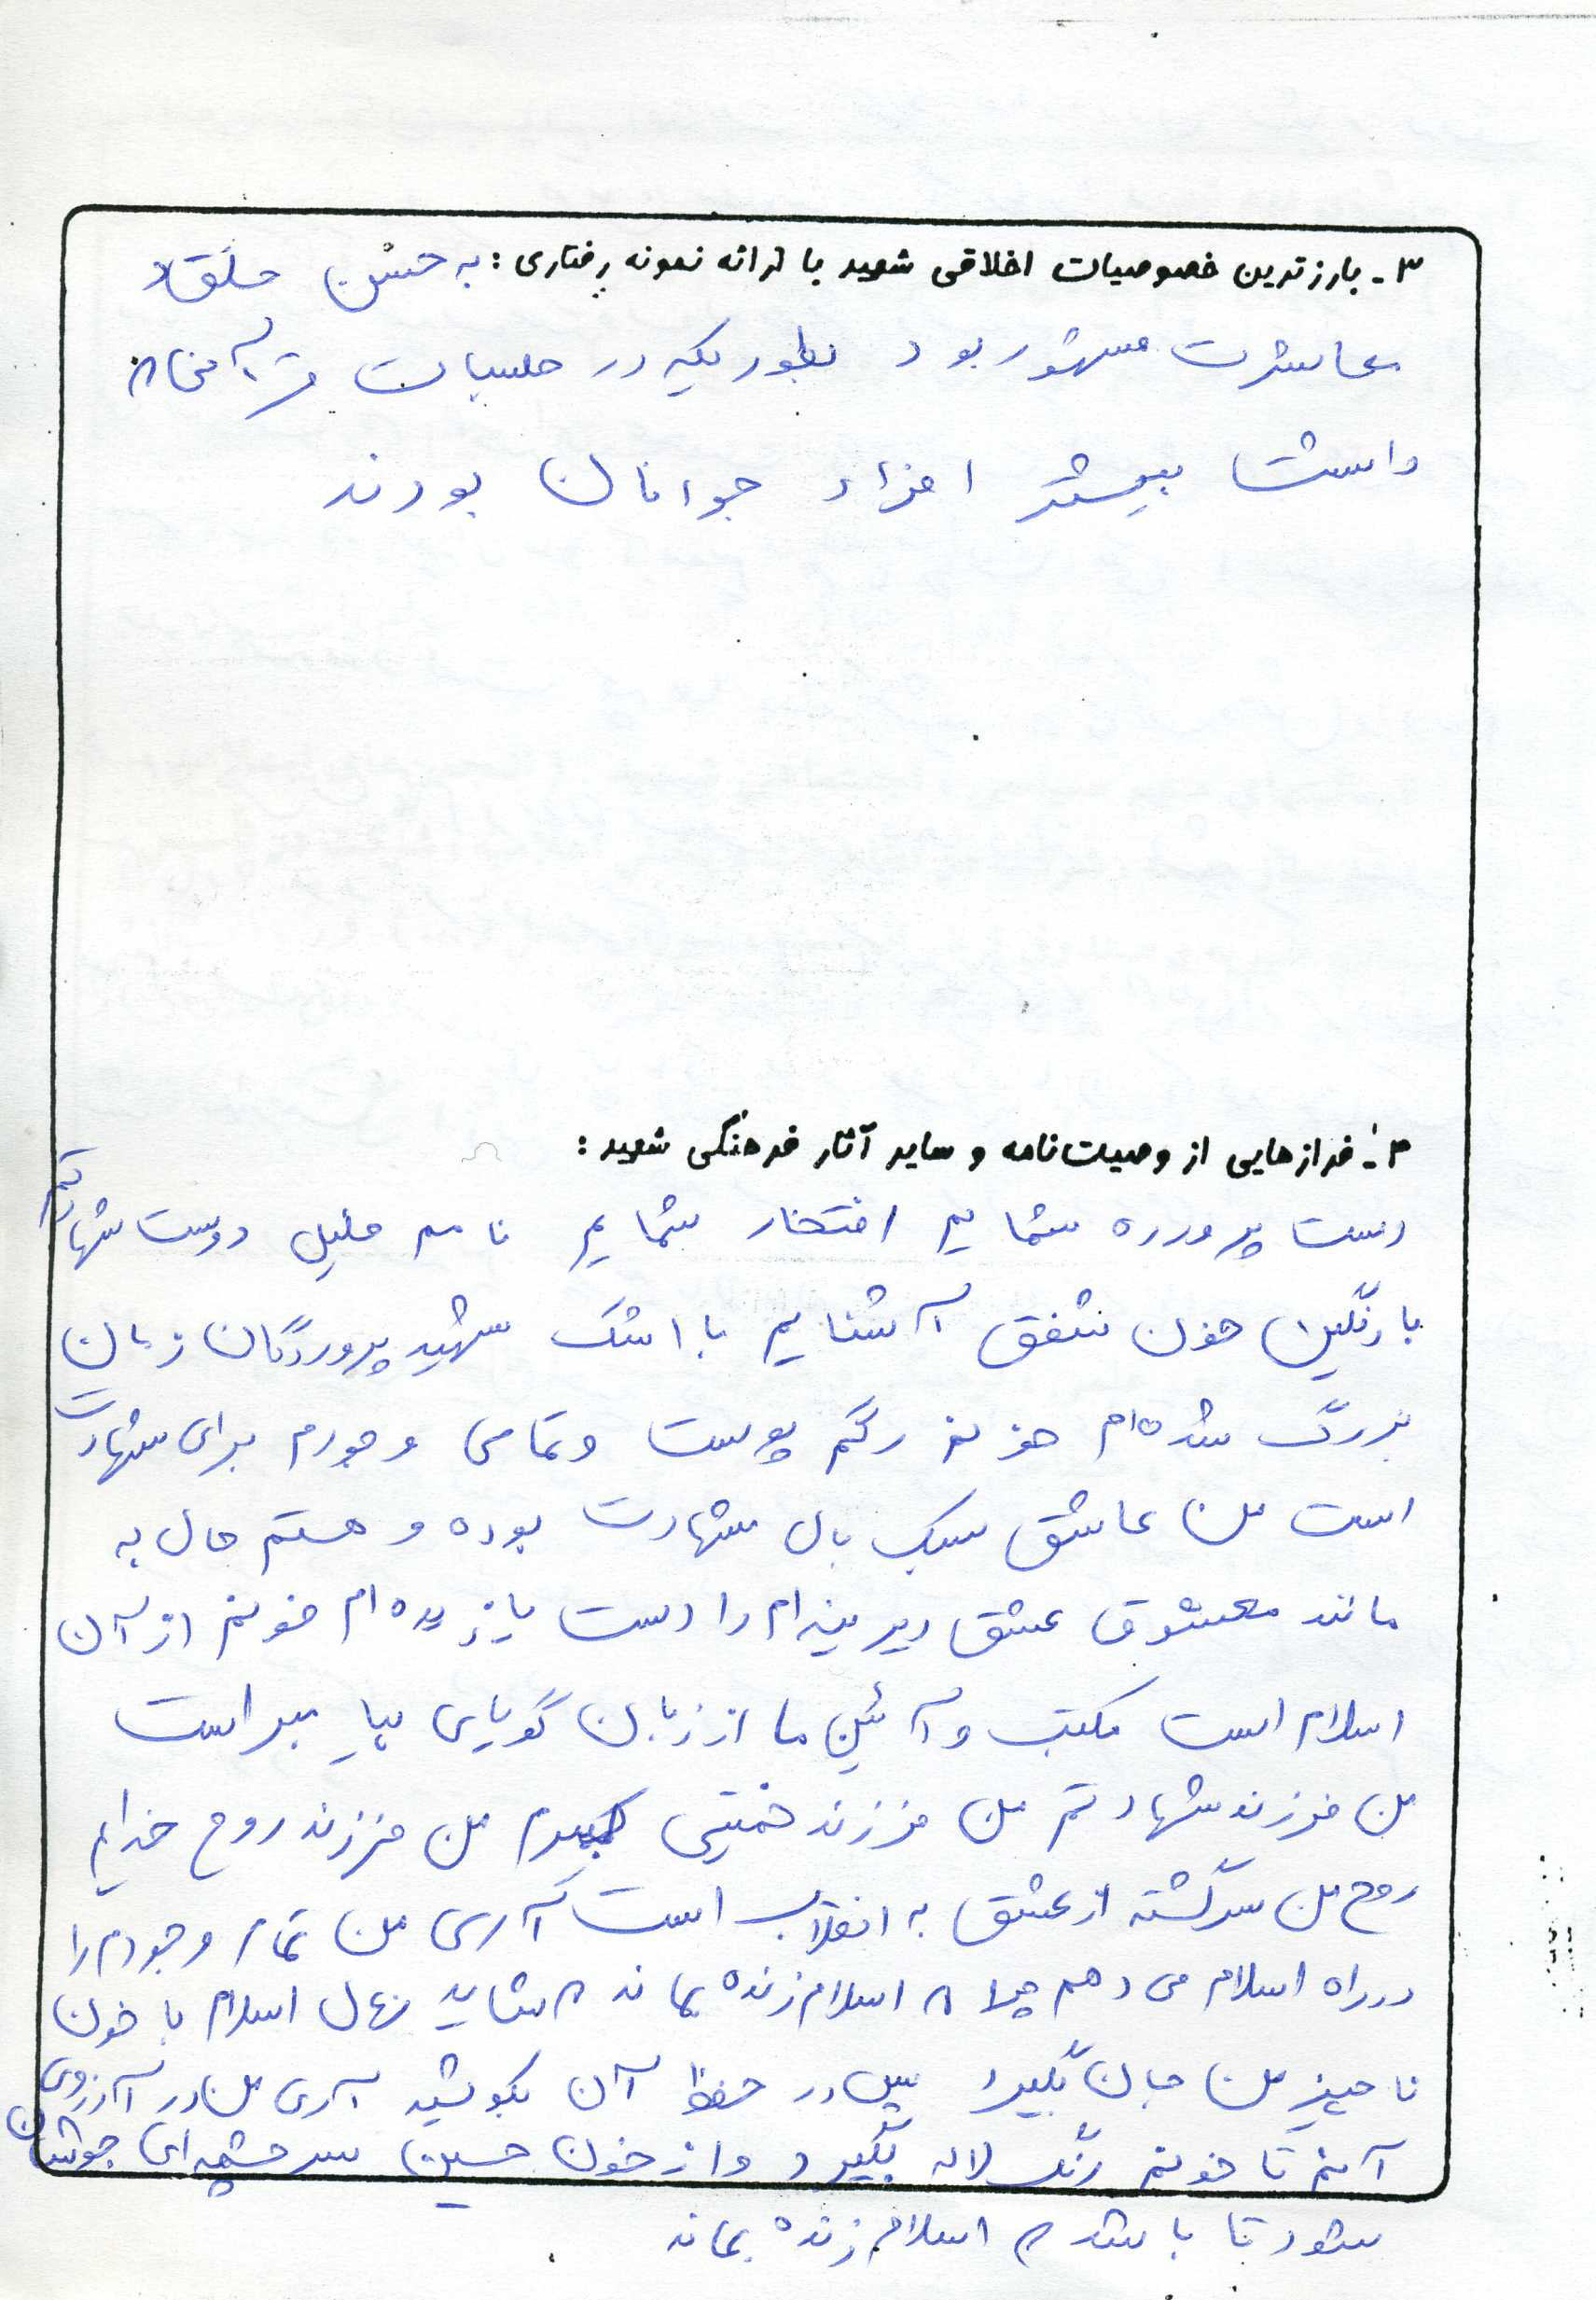 ۳- بارزترین خصوصیات اخلاقی شهید با ارائه نمونه رفتاری: به حسن خلق و
عاشرت مشهور بود بطوریکه در جلسات قرآنی که
داشت بیشتر افراد جوانان بودند
۴- فرازهایی از وصیت‌نامه و سایر آثار فرهنگی شهید:
دست پرورده شمایم افتخار شمایم نامم خلیل دوست شهادتم
با رنگین خون شفق آشنایم با اشک شهید پروردگان زمان
بزرگ شده‌ام خونم رگم پوست و تمامی وجودم برای شهادت
است من عاشق سبک بال شهادت بوده و هستم حال به
مانند معشوق عشق دیرینه‌ام را دست یازیده‌ام خونم از آن
اسلام است مکتب و آئین ما از زبان گویای پیامبر است
من فرزند شهادتم من فرزند خمینی کبیرم من فرزند روح خدایم
روح من سرگشته از عشق به انقلاب است آری من تمام وجودم را
در راه اسلام می دهم چرا که اسلام زنده بماند که شاید نهال اسلام با خون
ناچیز من جان بگیرد پس در حفظ آن بکوشید آری من در آرزوی
آنم تا خونم رنگ لاله بگیرد و از خون حسین سرچشمه‌ای جوشان
شود تا باشد که اسلام زنده بماند